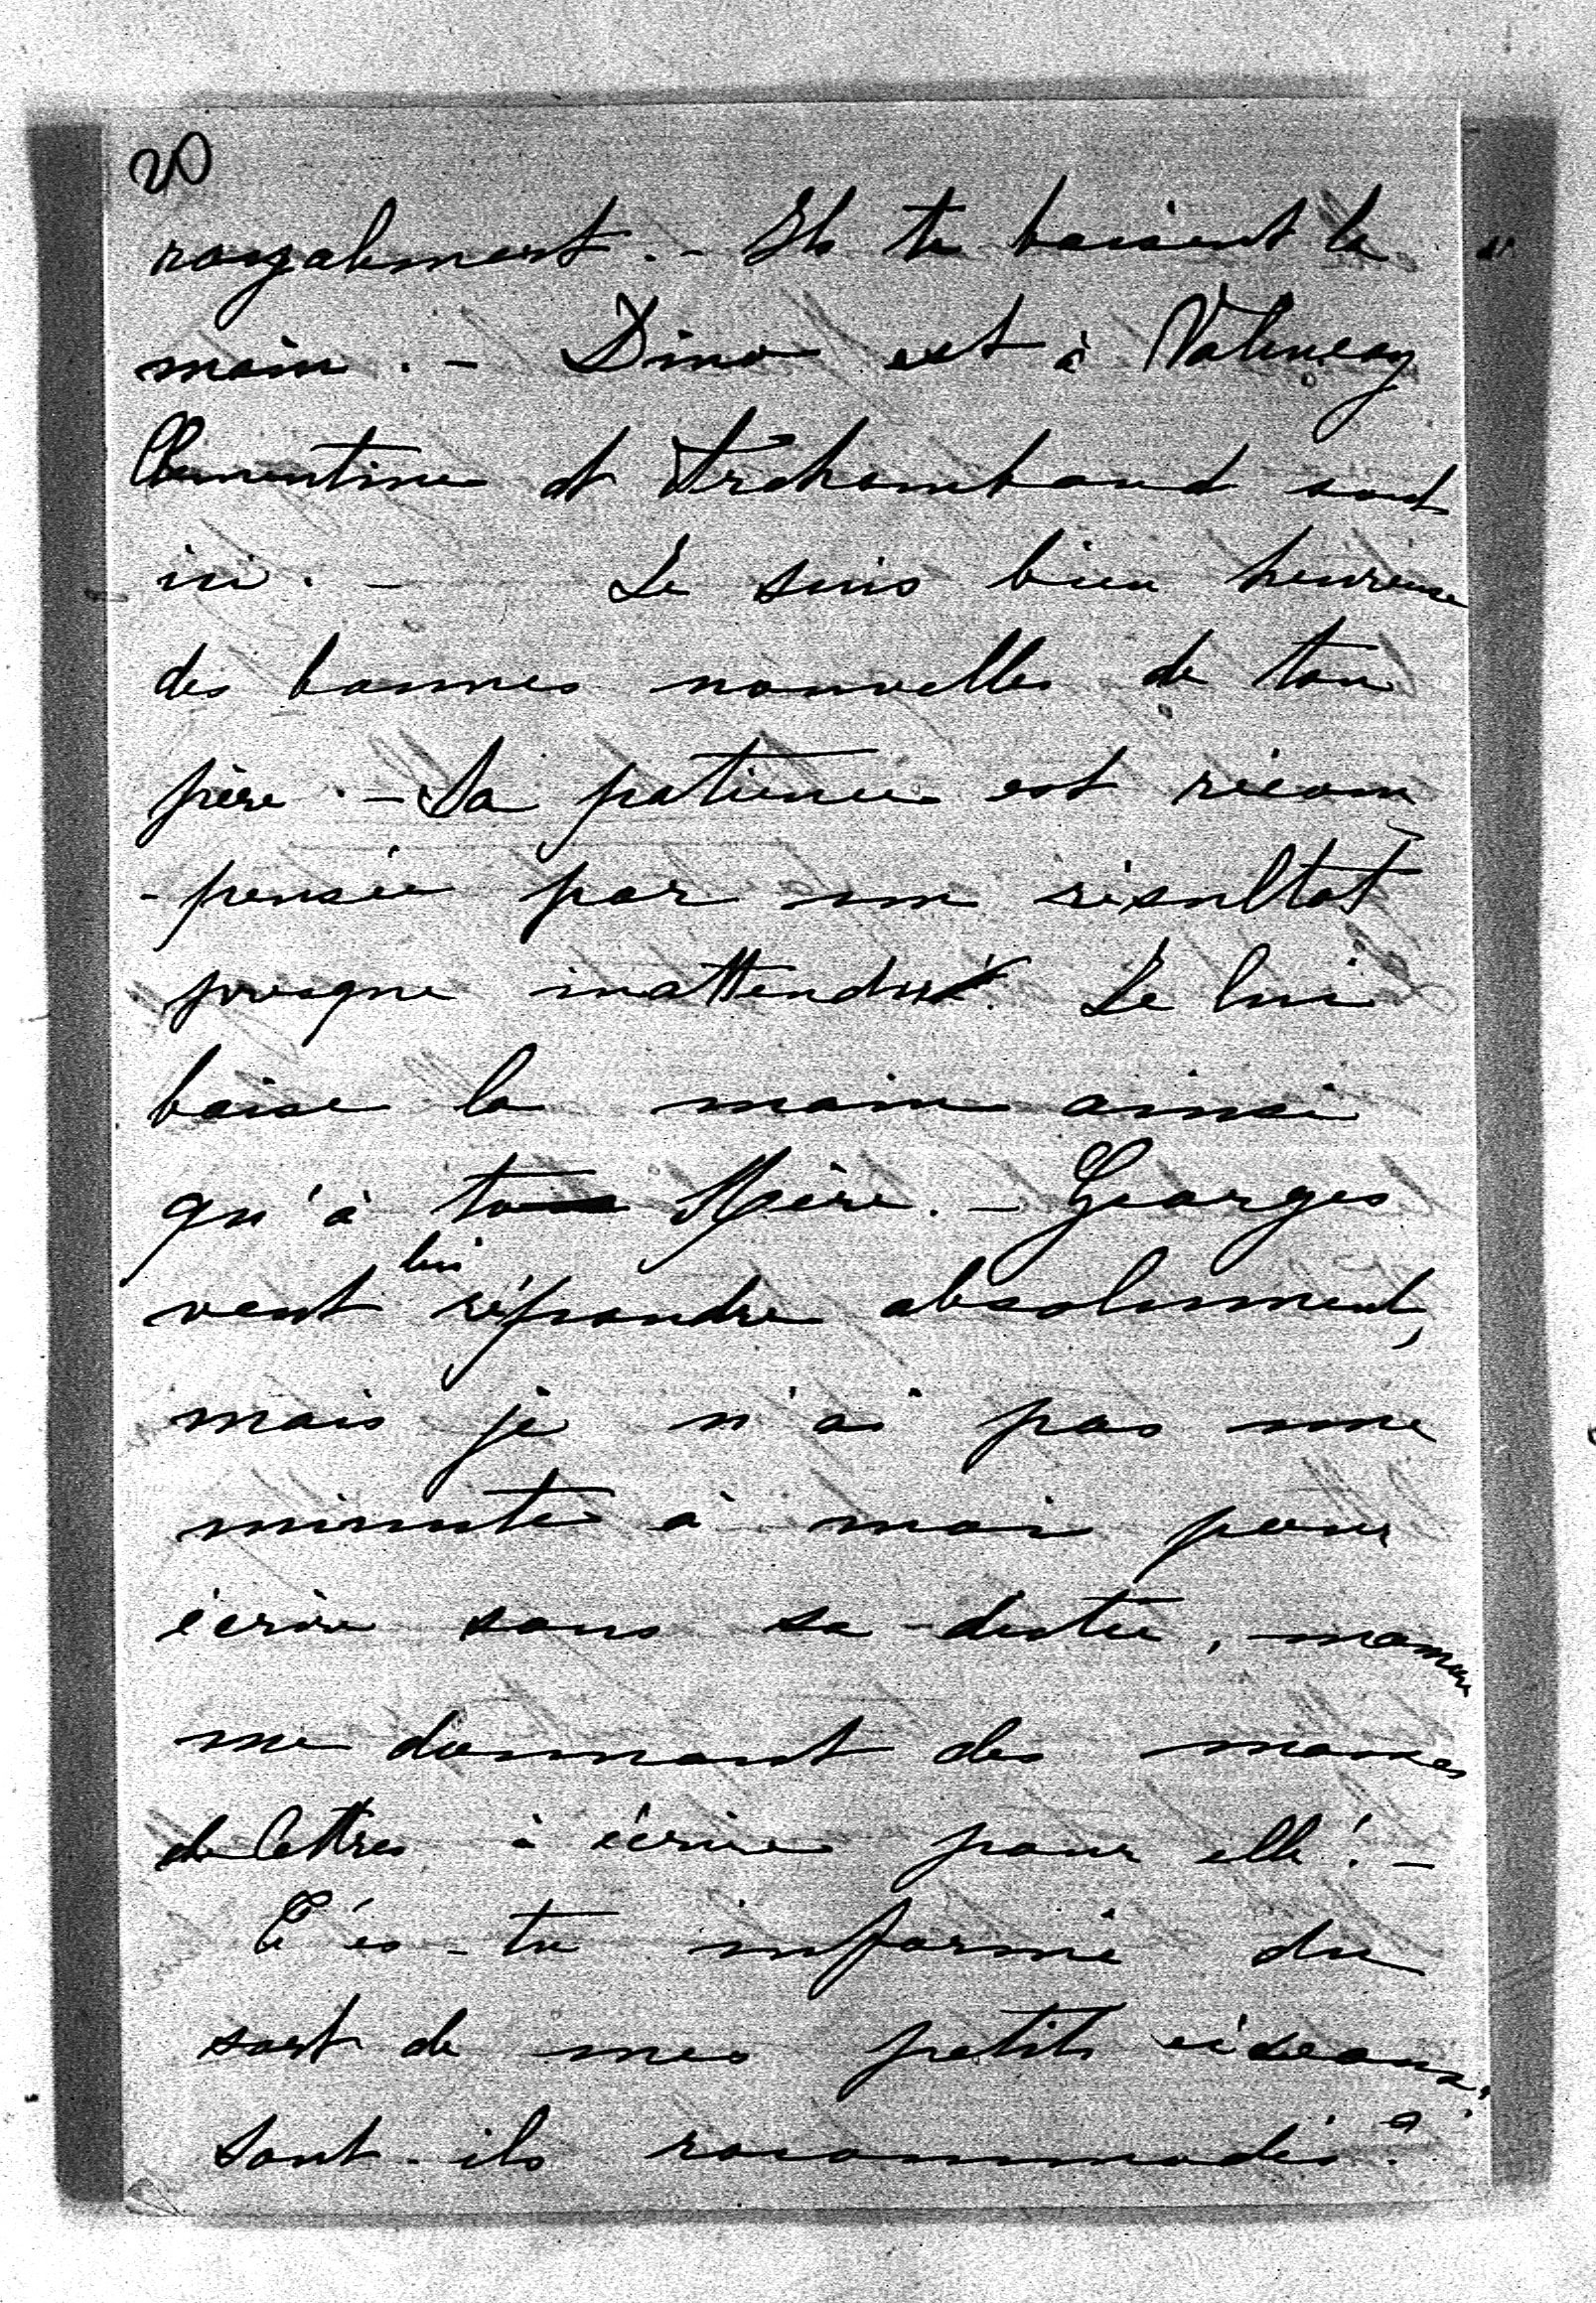 20
royalement. - Ils te baisent la
main. - Dino est à Valençay
Clementine et Archambaud sont
ici. - Je suis bien heureuse
des bonnes nouvelles de ton
père. - Sa patience est récom
-pensée par un résultat
presque inattendu. Je lui
baise la main ainsi
qu'à ta Mère. - Georges
veut lui répondre absolument,
mais je n'ai pas une
minute à moi pour
écrire sous sa dictée, maman
me donnant des masses
de lettres à écrire pour elle! -
T'es-tu informé du
sort de mes petits ciseaux;
sont-ils racommodés?